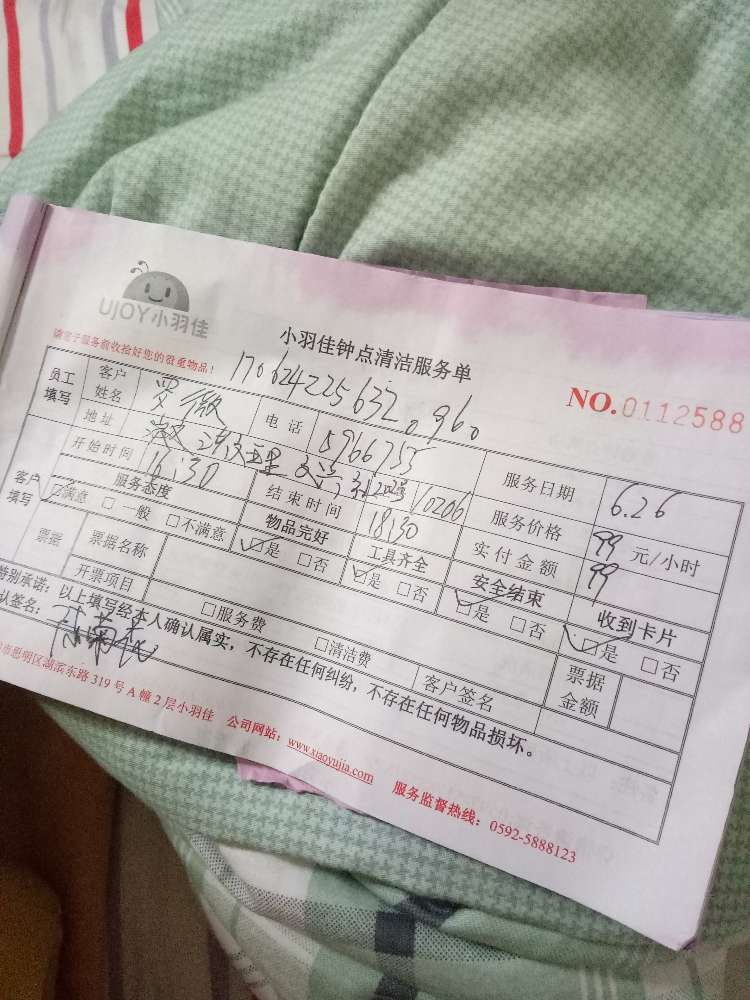 UJOY小羽佳
小羽佳钟点清洁服务单
请常于服务前收拾好您的贵重物品!
170624225632。96。
NO.0112588
员工填写 客户姓名 罗薇 电话 5966755 服务日期 6.26
地址 3号202 10206 服务价格 99 元/小时
开始时间 16:30 结束时间 18:30 实付金额 99
客户填写 服务态度 物品完好 工具齐全 安全结束 收到卡片
☑满意 □一般 □不满意 ☑是 □否 ☑是 □否 ☑是 □否 ☑是 □否
票据 票据名称 票据金额
开票项目 □服务费 □清洁费 客户签名
特别承诺:以上填写经本人确认属实,不存在任何纠纷,不存在任何物品损坏。
认签名:
市思明区湖滨东路319号A幢2层小羽佳 公司网站:www.xiaoyujia.com 服务监督热线:0592-5888123